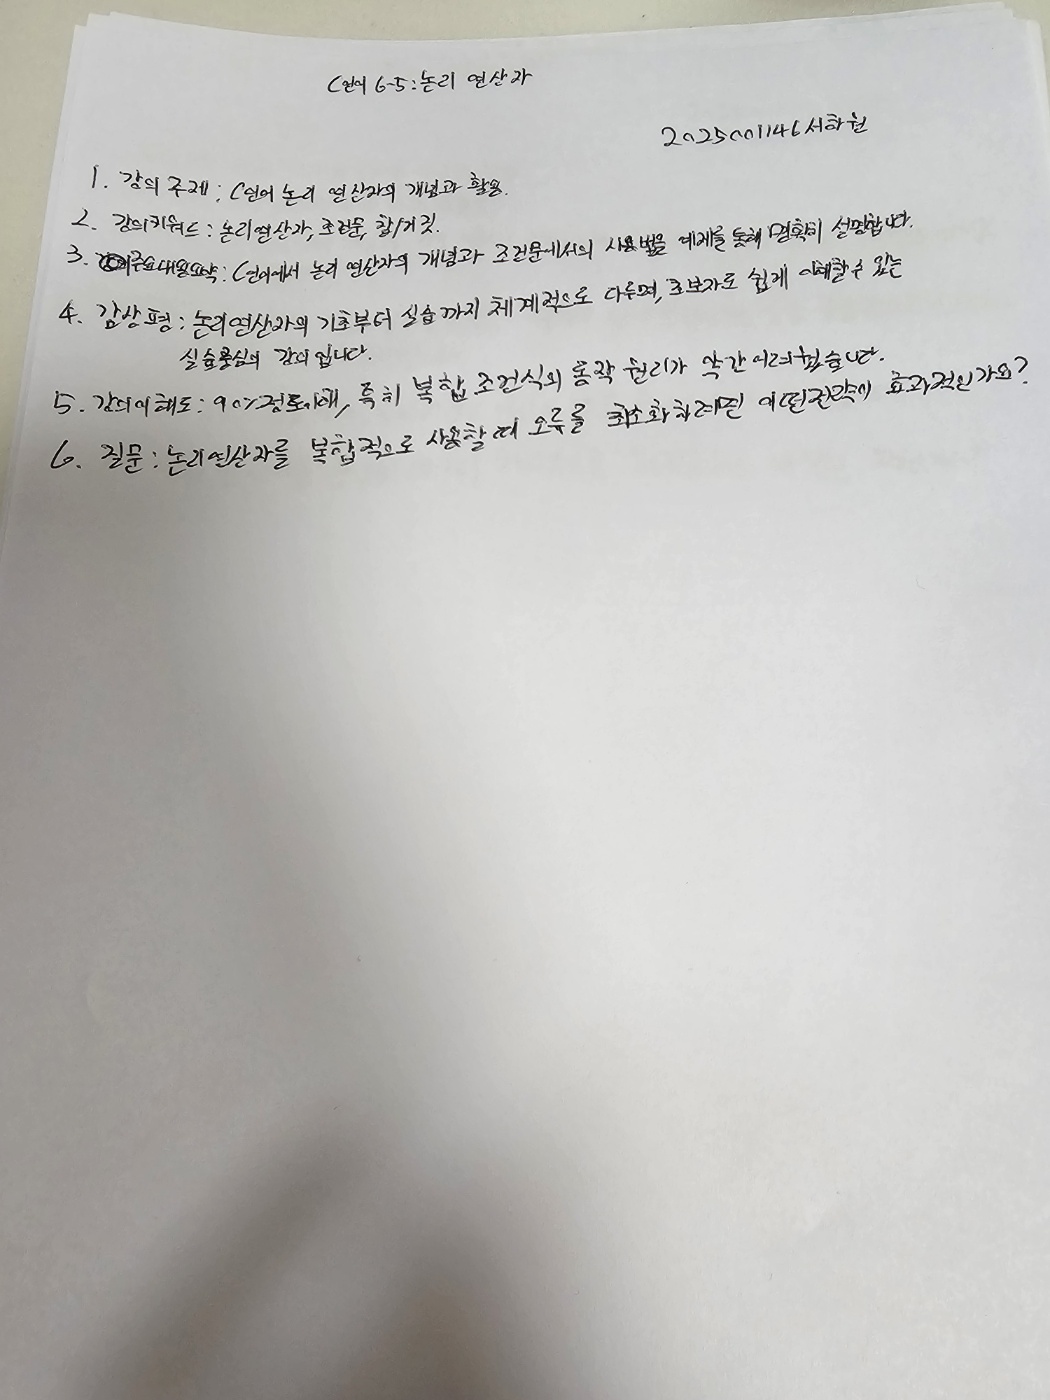 C언어 6-5: 논리 연산자
2025001146 서하원
1. 강의 주제: C언어 논리 연산자의 개념과 활용.
2. 강의키워드: 논리연산자, 조건문, 참/거짓.
3. 주요내용요약: C언어에서 논리 연산자의 개념과 조건문에서의 사용법을 예제를 통해 명확히 설명합니다.
4. 감상평: 논리연산자의 기초부터 실습까지 체계적으로 다루며, 초보자도 쉽게 이해할 수 있는
실습중심의 강의입니다.
5. 강의이해도: 90%정도이해, 특히 복합 조건식의 동작 원리가 약간 어려웠습니다.
6. 질문: 논리연산자를 복합적으로 사용할 때 오류를 최소화하려면 어떤전략이 효과적인가요?